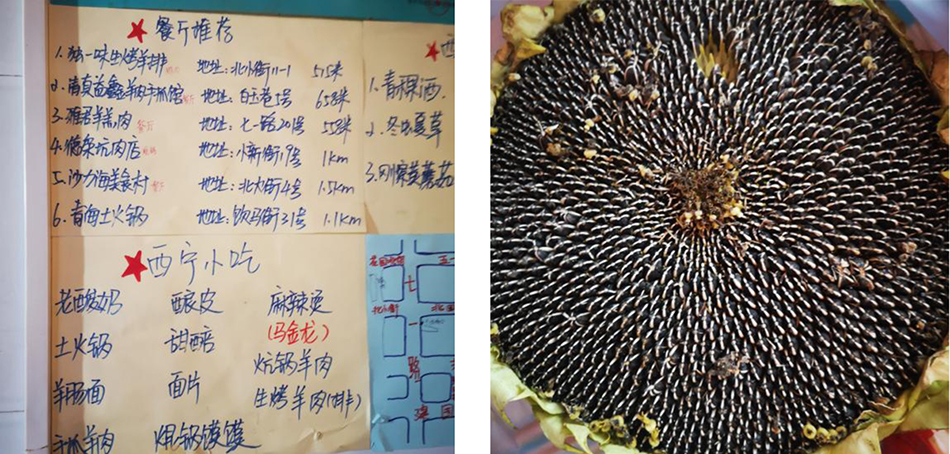 ★餐厅推荐
1. 独一味生烤羊排 地址:北小街11-1 515米
2. 清真益鑫羊肉手抓馆 餐厅 地址:白玉巷5号 658米
3. 雅君羊羔肉 餐厅 地址:七一路20号 558米
4. 德祭坑肉店 地址:小新街19号 1km
5. 沙力海美食村 餐厅 地址:北大街4号 1.5km
6. 青海土火锅 地址:饮马街31号 1.1km
★西
1. 青稞酒
2. 冬虫夏草
3.
★西宁小吃
老酸奶 酿皮 麻辣烫
(马金龙)
土火锅 甜醅 炕锅羊肉
羊肠面 面片 生烤羊肉(排)
手抓羊肉 焜锅馍馍
七
一
路